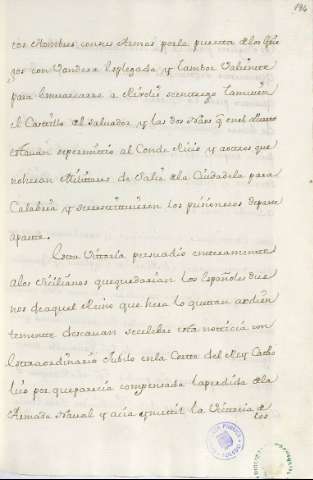 196
tos Hombres con sus Armas por la puerta de los Grie
gos con Vandera desplegada y tambor Valiente
para embarcarse a se entrego tamvien
el Castillo del salvador y las dos Naos q en el Puerto
estavan se permitio al Conde Ricio y a otros que
no heran Militares de salir de la Ciudadela para
Calabria y se restituieron los prisioneros de parte
a parte.
Esta Vittoria persuadio enteramente
a los Sicilianos que quedarian los Españoles due
nos de aquel Reino que hera lo que tan ardien
temente deseauan se celebro esta noticia con
extraordinario Jubilo en la Corte del Rey Catho
lico por que parecia compensada la perdida de la
Armada Naval y acia que la Vittoria de
los